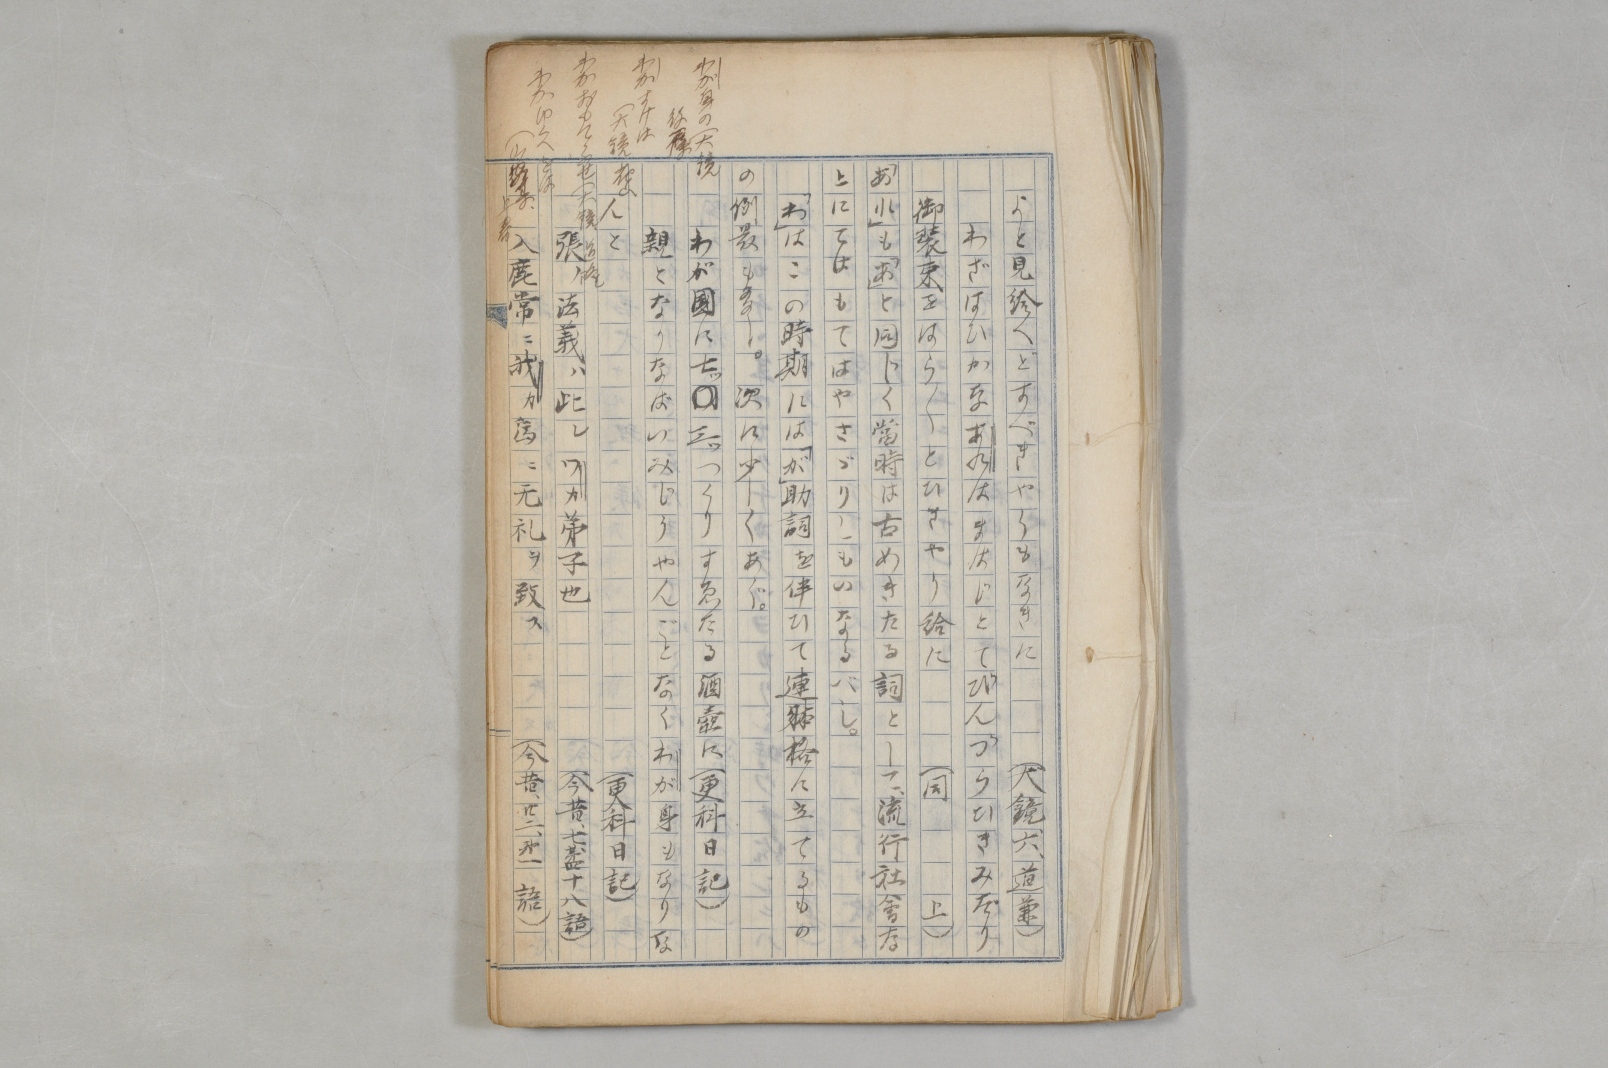 よと見給へどすべきやうもなきに
(大鏡六、道兼)
わざはひかなあれはまはじとてびんづらひきみだり
御装束をはら〳〵とひきやり給に
(同 上)
「あれ」も「あ」と同じく當時は古めきたる詞として、流行社會な
上にてはもてはやさゞりしものなるべし。
「わ」はこの時期には「が」助詞を伴ひて連躰格に立てるもの
の例最も多し。次に少しくあぐ。
わが國に七つ三つつくりすゑたる酒壺に(更科日記)
親となりなばいみじうやんごとなくわが身もなりな
んと
(更科日記)
張ノ法義ハ此レワガ弟子也
(今昔、七、十八語)
入鹿常ニ我ガ為ニ无礼ヲ致ス
(今昔、廿二、第一語)
わが身の(大鏡